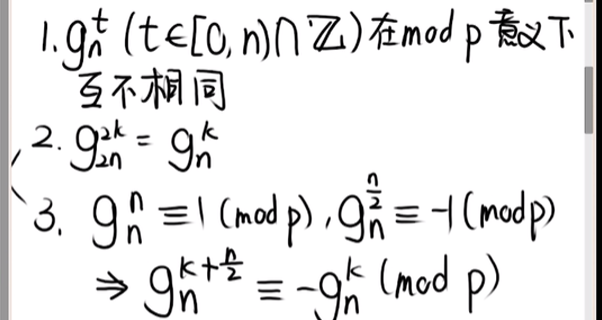 1. gₙᵗ (t∈[0,n)∩ℤ) 在 mod p 意义下
互不相同
2. g₂ₙ²ᵏ = gₙᵏ
3. gₙⁿ ≡ 1 (mod p), gₙ^(n/2) ≡ -1 (mod p)
⇒ gₙ^(k+n/2) ≡ -gₙᵏ (mod p)